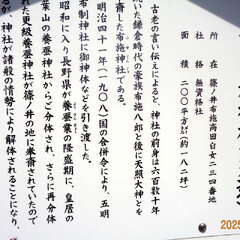 所在 篠ノ井布施高田白女二三四番地
社格 無資格社
面積 二〇〇平方㍍(約一八二坪)
古老の言い伝えによると、神社の前身は六百数十年
いた鎌倉時代の豪族布施八郎と後に天照大神とを
斎した布施神社である。
明治四十一年(一九〇八)国の合併令により、五明
布制神社に御神体などを引き渡した。
昭和に入り長野県が養蚕業の隆盛期に、皇居の
葉山の養蚕神社からご分体され、さらに再分体
れた更級養蚕神社が篠ノ井の地に奉斎されていたので
るが、神社が諸般の情勢により解体されることになり、